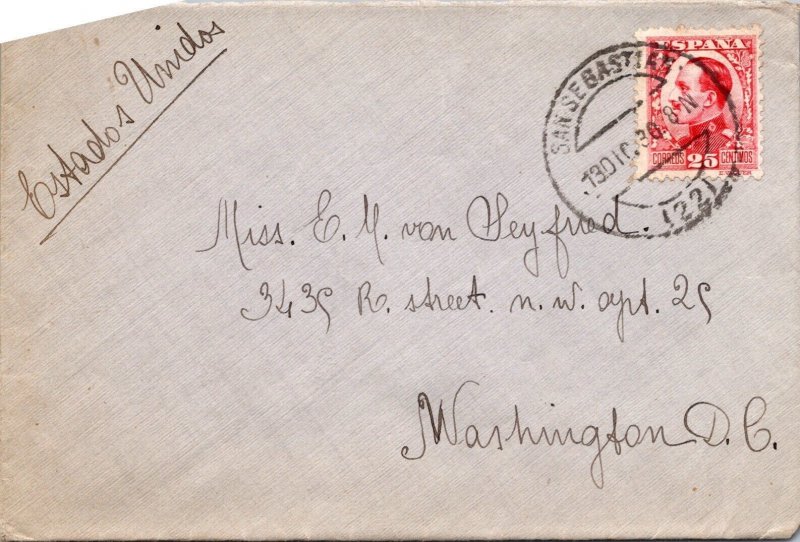 Estados Unidos
ESPAÑA
CORREOS 25 CENTIMOS
SAN SEBASTIAN
13 DIC. 30. 8 N
(22)
Miss. E. M. von Seyfried.
3435 R. street. n. w. apt. 25
Washington D. C.